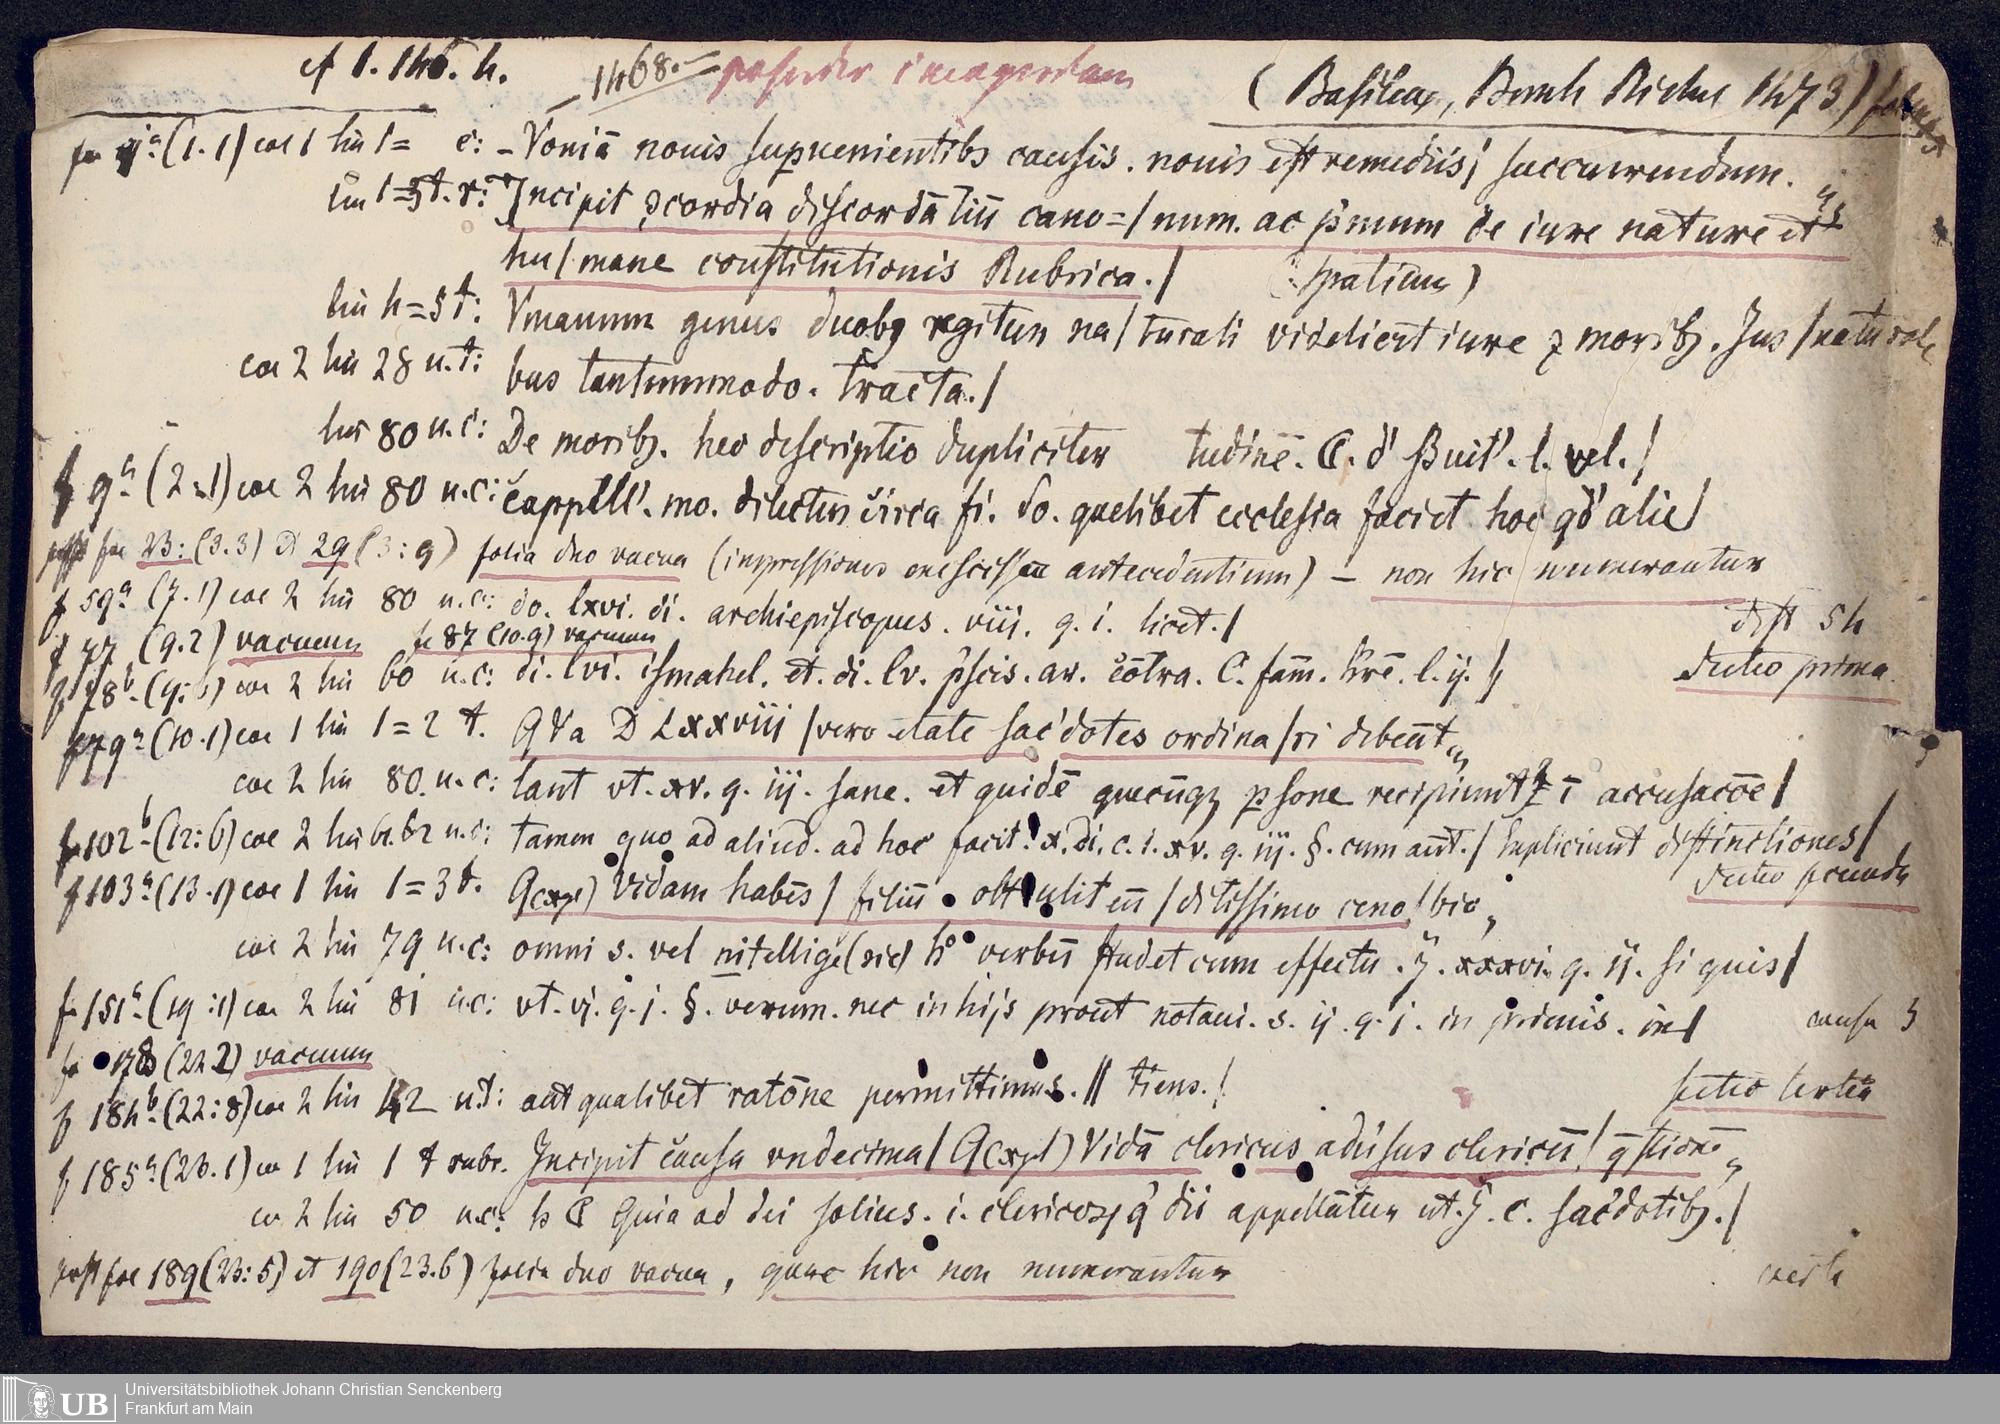 cf 1. 146. h.
1468.
(Basileae, Bernh Richel 1473)
(1.1) col 1 lin 1= c: Voniā nouis suꝑuenientibs causis. nouis est remediis/ succurrendum.
Incipit ꝯcordia discordātiū cano=/num. ac p̄mum de iure nature et
hu/mane constitutionis Rubrica./ (spatium)
lin 4=5 t: Vmanum genus duobꝫ regitur na/turali videlicet iure ꝛ moribꝫ. Jus/naturale
col 2 lin 28 u.t: bus tantummodo. tracta./
lin 80 u.c: De moribꝫ. hec descriptio dupliciter tudinē. C. d' . l. vel./
f 9a (2.1) col 2 lin 80 u.c: mo. dilectus circa fi. do. quelibet ecclesia faciet hoc qd' alie/
post fol 23: (3.3) et 29 (3:9) folia duo vacua (impressiones antecedentium) – non hic numerantur
f 59a (7.1) col 2 lin 80 u.c: do. lxvi. di. archiepiscopus. viii. q. i. licet./
dist 54
f 77 (9.2) vacuum fo 87 (10.9) vacuum
f 78b (9:) col 2 lin 60 u.c: di. lvi. ismahel. et. di. lv. p̄scis. ar. cōtra. C. fam. hrē. l. ij. //
sectio prima
f 79a (10.1) col 1 lin 1=2 t. D Lxxviii /vero etate sac'dotes ordina/ri debent
col 2 lin 80. u.c: lant vt. xv. q. iij. sane. et quidē quecūqꝫ ꝑsone recipiunt ī accusacōe/
f 102b (12:6) col 2 lin 61.62 u.c: tamen quo ad aliud. ad hoc facit. x. di. c. i. xv. q. iij. §. cum aūt./ Expliciunt distinctiones/
sectio secunda
f 103a (13.1) col 1 lin 1=3 t. Q(expl) Vidam habēs/ filiū obtulit eū/ditissimo ceno/bio
col 2 lin 79 u.c: omni s. vel nitellige (sic) h° verbū studet cum effectu. J. xxxvi. q. ij. si quis/
f 151a (19:1) col 2 lin 81 u.c: vt. vj. q. j. §. verum. nec in hijs prout notaui. s. ij. q. j. in primis. in/
causa 3
fo 178 (22.2) vacuum
f 184b (22:8) col 2 lin 42 u.t: aut qualibet ratōne permittimus. // tiens./
sectio tertia
f 185a (23.1) col 1 lin 1 t rubr. Incipit causa vndecima/ Q(expl) Vidā clericus adu'sus clericū/ q̄stionē
col 2 lin 50 u.c: h C Quia ad dei solius. i. clericoꝝ q' dii appellātur ut. J. c. sac'dotibꝫ./
post fol 189 (23:5) et 190 (23.6) folia duo vacua, quae hic non numerantur
verte
UB
Universitätsbibliothek Johann Christian Senckenberg
Frankfurt am Main